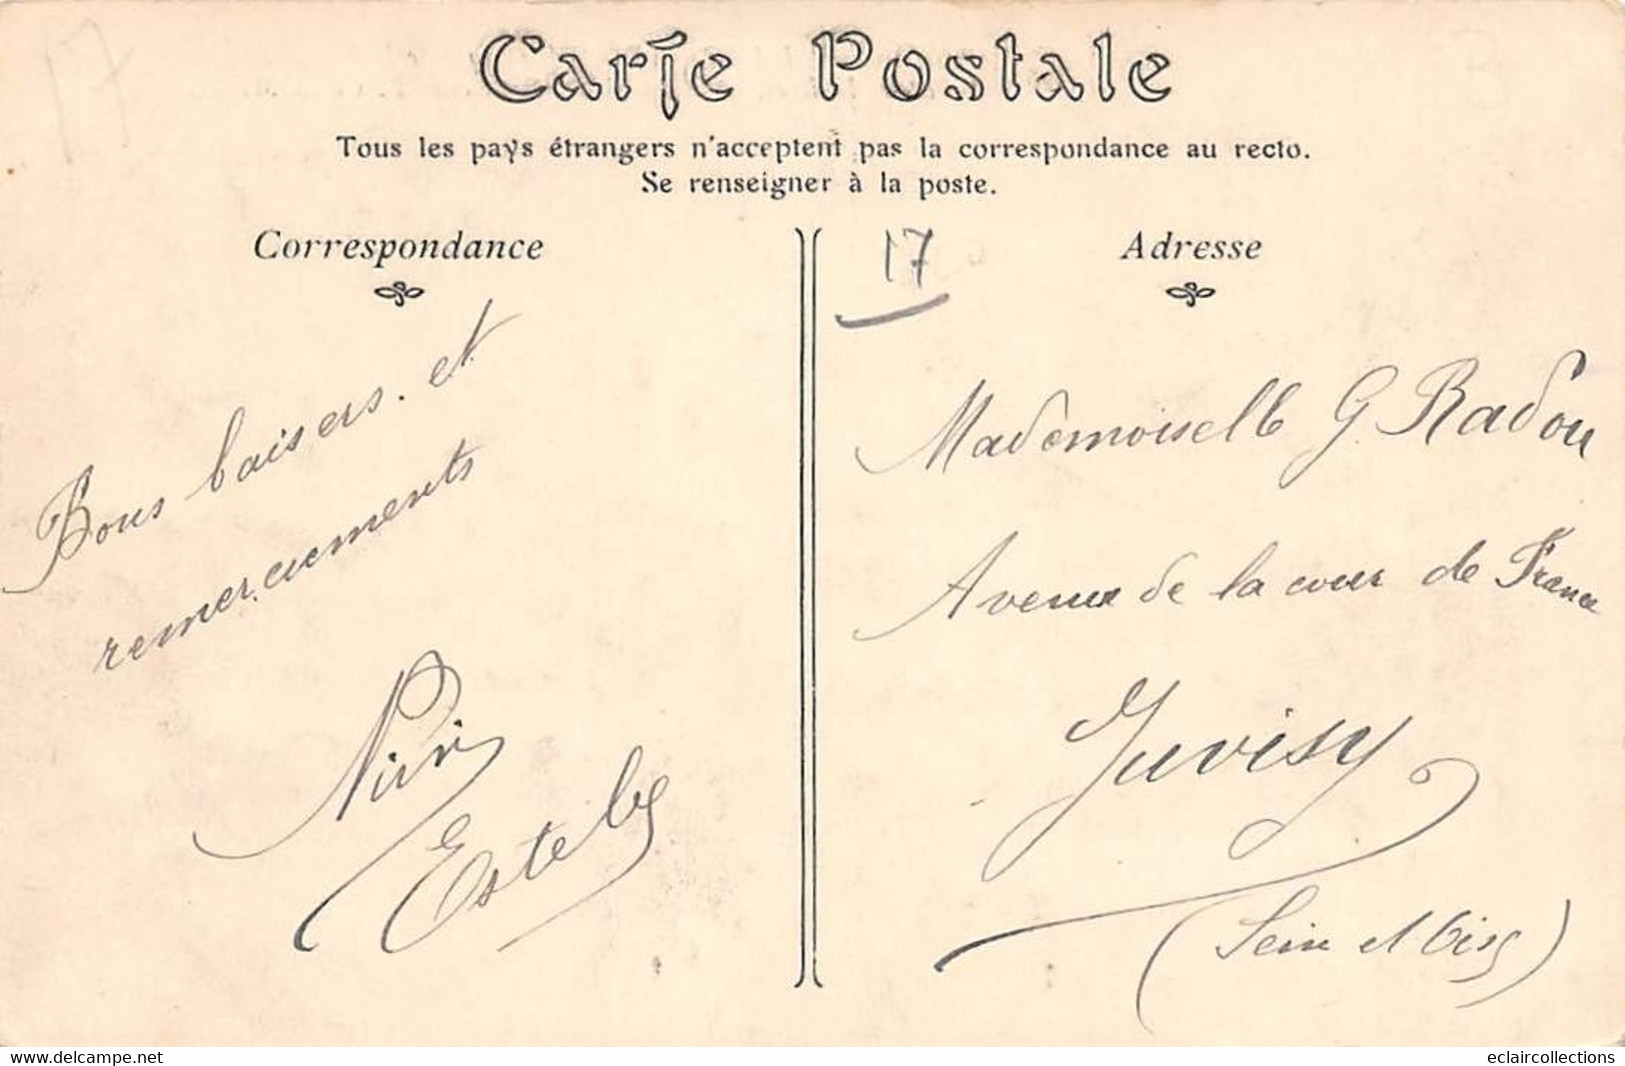 17
Carte Postale
Tous les pays étrangers n'acceptent pas la correspondance au recto.
Se renseigner à la poste.
Correspondance
Bons baisers. et
remerciements
17
Adresse
Mademoiselle G Radou
Avenue de la cour de France
Juvisy
(Seine et Oise)
delcampe.net
eclaircollections